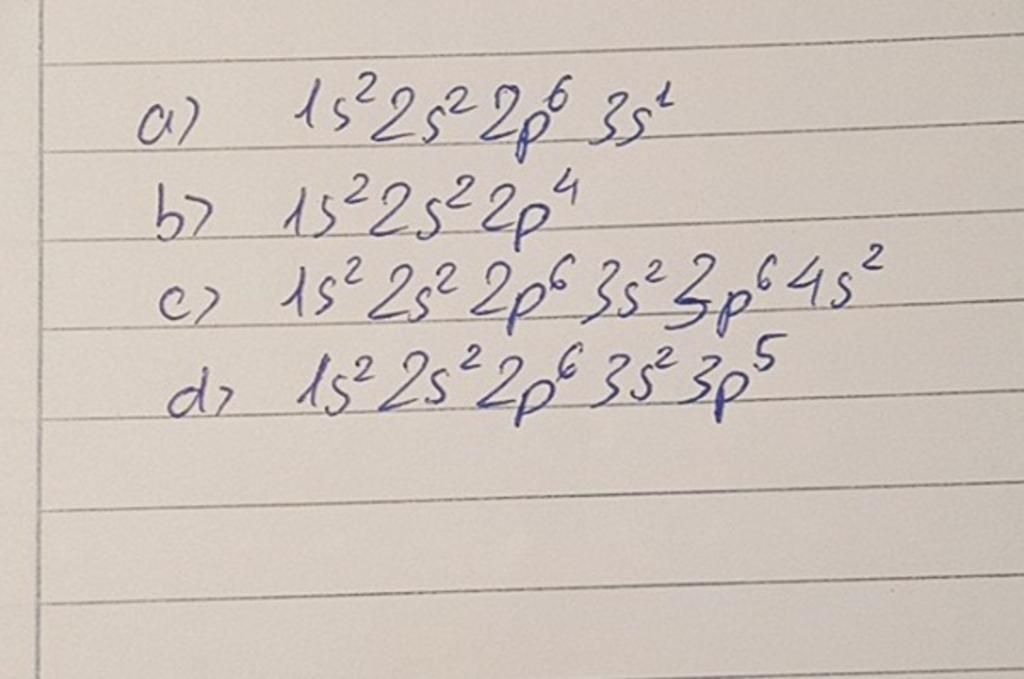 a) 1s² 2s² 2p⁶ 3s¹
b) 1s² 2s² 2p⁴
c) 1s² 2s² 2p⁶ 3s² 3p⁶ 4s²
d) 1s² 2s² 2p⁶ 3s² 3p⁵